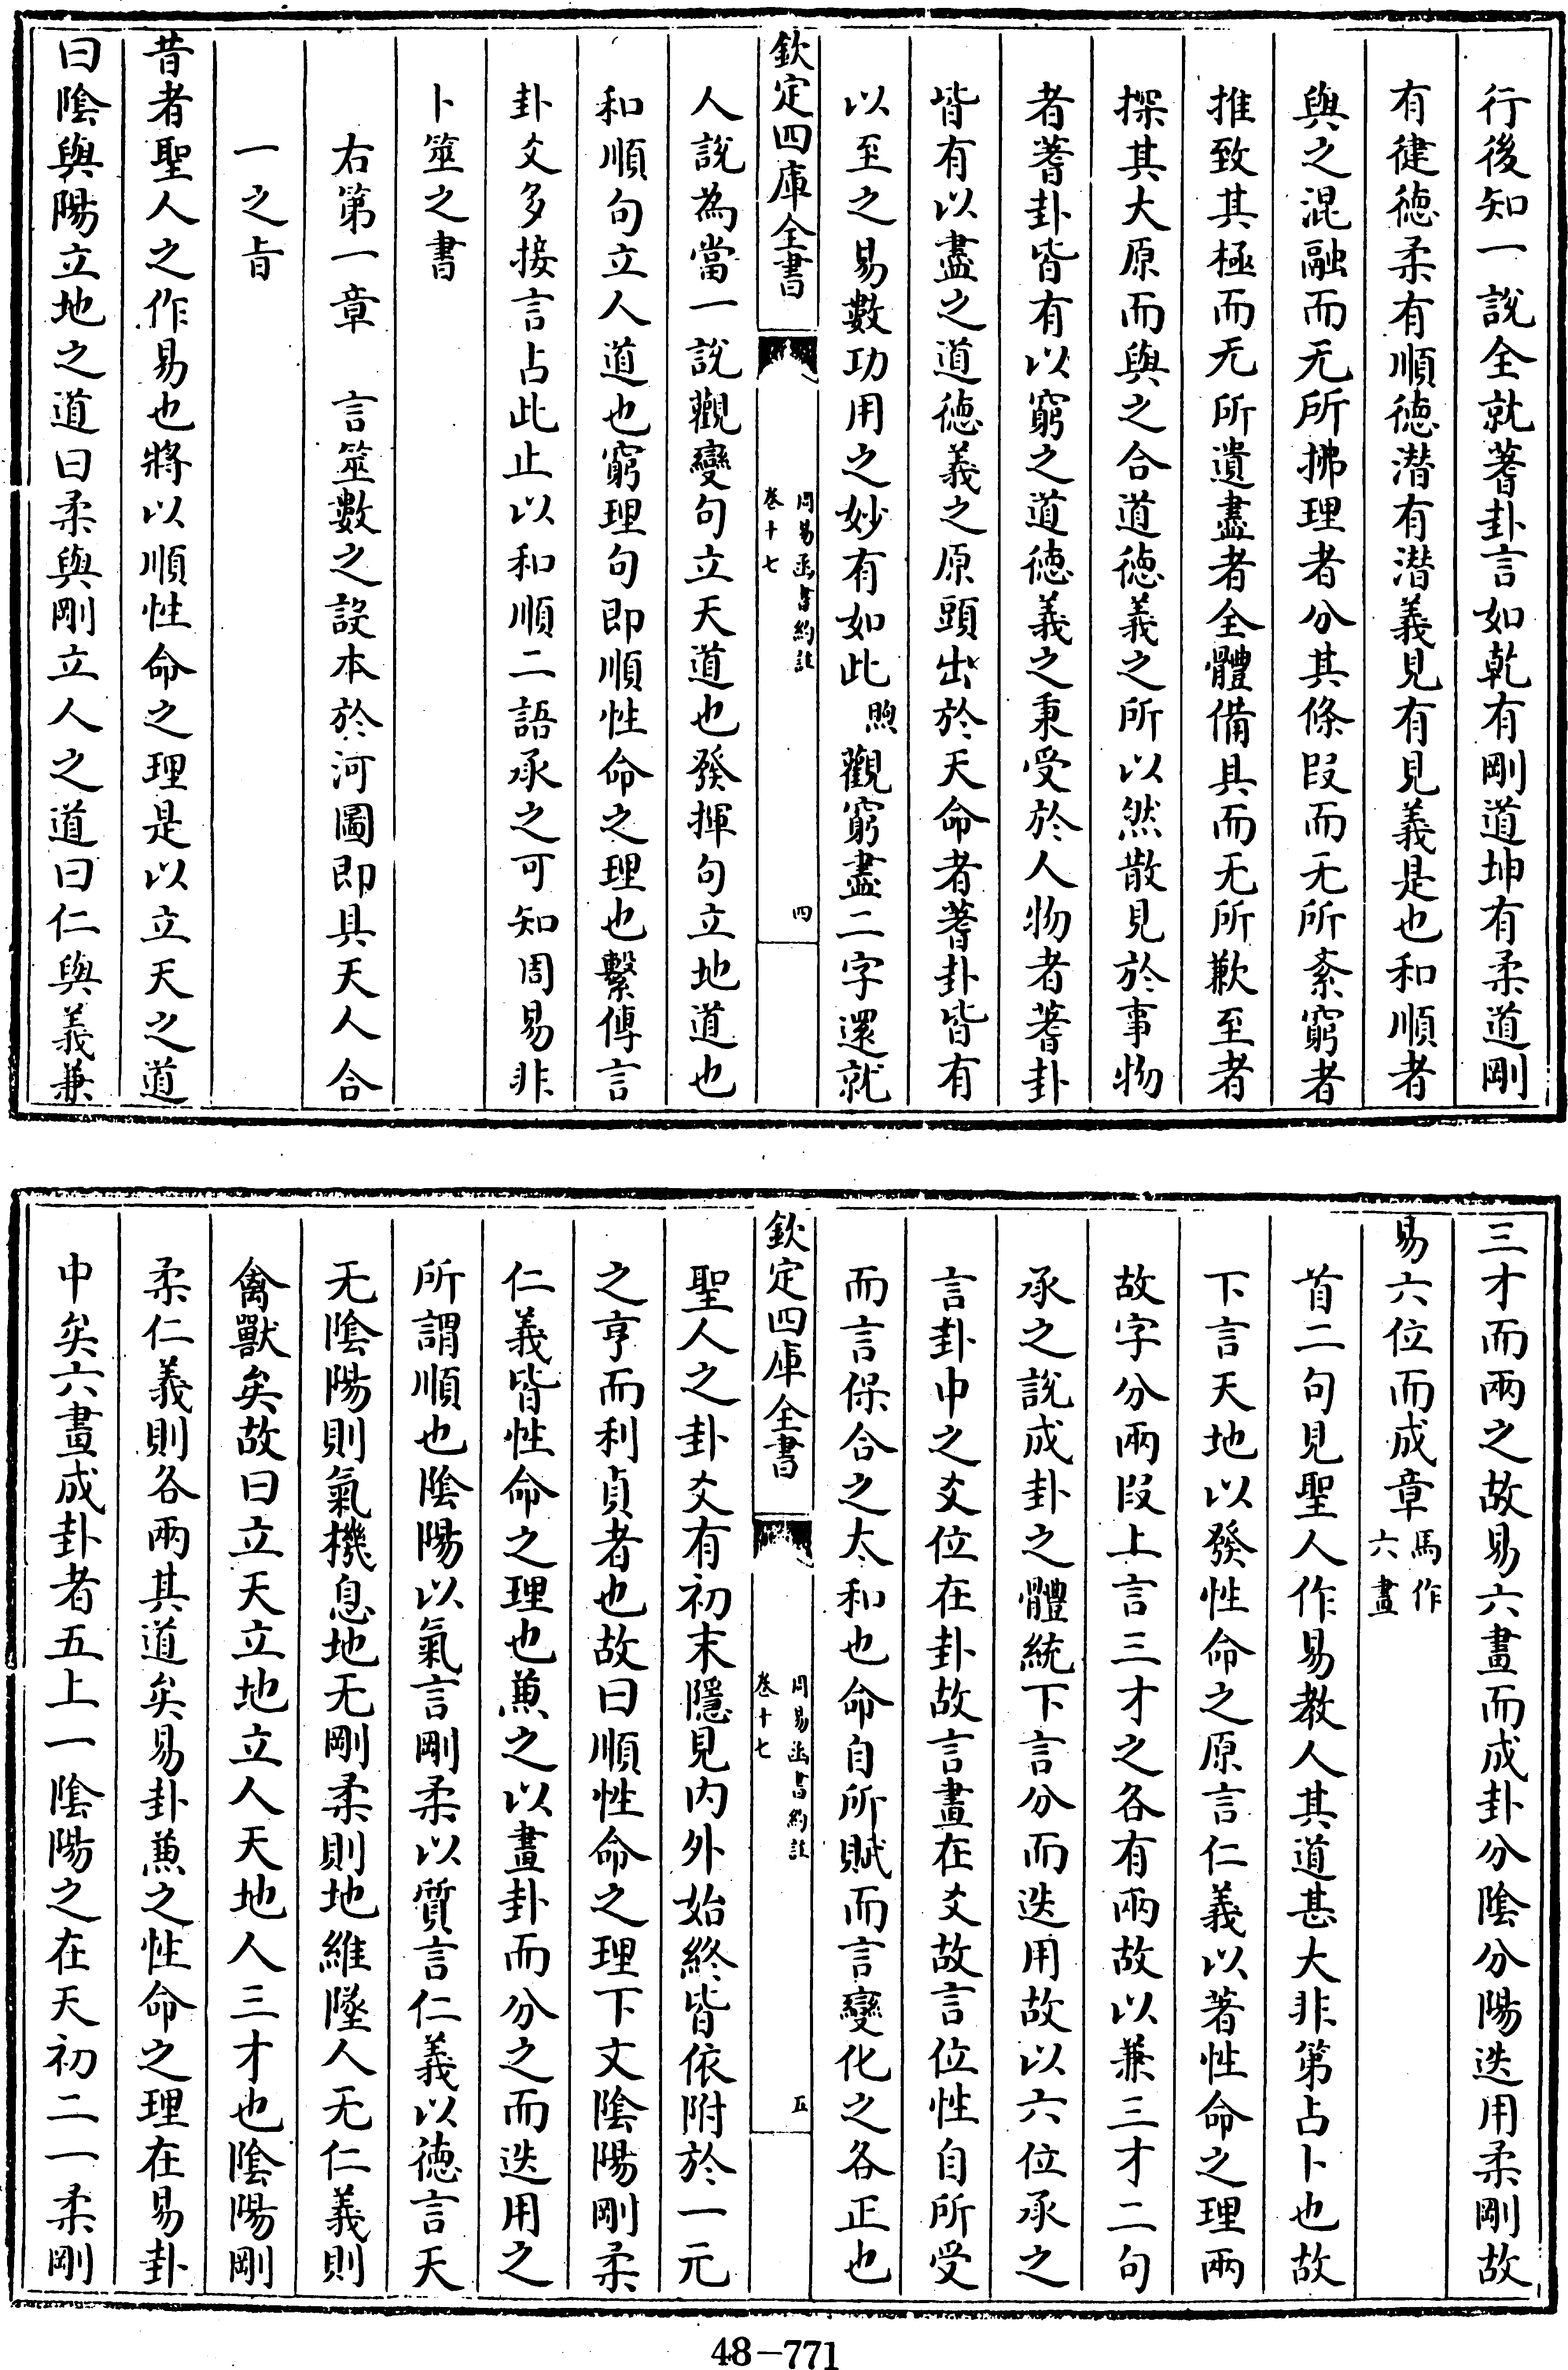 行後知一說全就蓍卦言如乾有剛道坤有柔道剛
有健徳柔有順徳潛有潛義見有見義是也和順者
與之混融而无所拂理者分其條段而无所紊窮者
推致其極而无所遺盡者全體備具而无所歉至者
探其大原而與之合道徳義之所以然散見於事物
者蓍卦皆有以窮之道徳義之秉受於人物者蓍卦
皆有以盡之道徳義之原頭出於天命者蓍卦皆有
以至之易數功用之妙有如此煦觀窮盡二字還就
欽定四庫全書
周易函書約註
卷十七
四
人說為當一說觀變句立天道也發揮句立地道也
和順句立人道也窮理句即順性命之理也繫傳言
卦爻多接言占此止以和順二語承之可知周易非
卜筮之書
右第一章 言筮數之設本於河圖即具天人合
一之旨
昔者聖人之作易也將以順性命之理是以立天之道
曰陰與陽立地之道曰柔與剛立人之道曰仁與義兼
三才而兩之故易六畫而成卦分陰分陽迭用柔剛故
易六位而成章馬作
六畫
首二句見聖人作易教人其道甚大非第占卜也故
下言天地以發性命之原言仁義以著性命之理兩
故字分兩段上言三才之各有兩故以兼三才二句
承之說成卦之體統下言分而迭用故以六位承之
言卦中之爻位在卦故言畫在爻故言位性自所受
而言保合之太和也命自所賦而言變化之各正也
欽定四庫全書
周易函書約註
卷十七
五
聖人之卦爻有初末隱見内外始終皆依附於一元
之亨而利貞者也故曰順性命之理下文陰陽剛柔
仁義皆性命之理也蕙之以畫卦而分之而迭用之
所謂順也陰陽以氣言剛柔以質言仁義以徳言天
无陰陽則氣機息地无剛柔則地維墜人无仁義則
禽獸矣故曰立天立地立人天地人三才也陰陽剛
柔仁義則各兩其道矣易卦蕙之性命之理在易卦
中矣六畫成卦者五上一陰陽之在天初二一柔剛
48-771